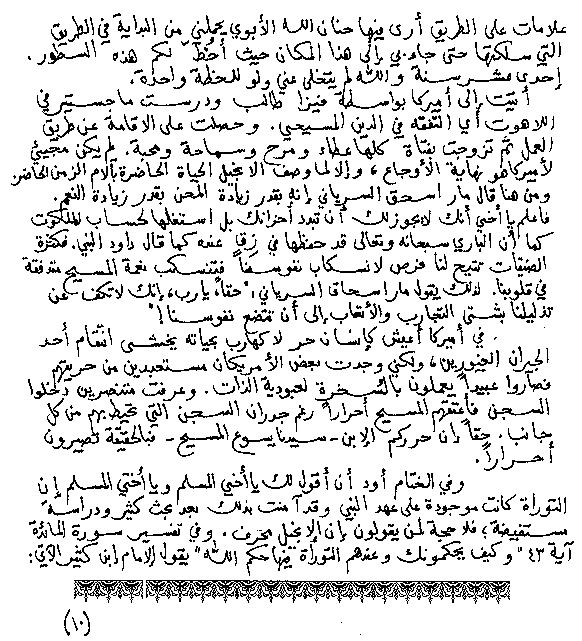 علامات على الطريق أرى فيها حنان الله الأبوي يحملني من البداية في الطريق
التي سلكتها حتى جاء بي إلى هذا المكان حيث أخُطّ لكم هذه السطور.
إحدى عشر سنة والله لم يتخلى عني ولو للحظة واحدة.
أتيت إلى أميركا بواسطة فيزا طالب ودرست ماجستير في
اللاهوت أي التفقه في الدين المسيحي. وحصلت على الاقامة عن طريق
العمل ثم تزوجت بفتاة كلها عطاء ومرح وسماحة ومحبة. لم يكن مجيئي
لأميركا هو نهاية الأوجاع، وإلا لما وصف الإنجيل الحياة الحاضرة بآلام الزمن الحاضر
ومن هنا قال مار اسحق السرياني إنه بقدر زيادة المحن بقدر زيادة النعم.
فاعلم يا أخي أنك لا يجوز لك أن تبدد أحزانك بل استغلها لحساب الملكوت
كما أن الباري سبحانه وتعالى قد حفظها في زق عنده كما قال داود النبي. فكثرة
الضيقات تتيح لنا فرص لانسكاب نفوسنا فتنسكب نعمة المسيح متدفقة
في قلوبنا. لذلك يقول مار اسحاق السرياني: "حقاً، يارب، إنك لا تكف عن
تذليلنا بشتى التجارب والأتعاب إلى أن تتضع نفوسنا!"
في أميركا أعيش كإنسان حر لا كهارب بحياته يخشى انتقام أحد
الجيران الغيورين، ولكني وجدت بعض الأمريكان مستعبدين من حريتهم
فصاروا عبيداً يعملون بالسُخرة لعبودية الذات. وعرفت متنصرين دخلوا
السجن فأعتقهم المسيح أحراراً رغم جدران السجن التي تحيط بهم من كل
جانب. حقاً إن حرركم الإبن - سيدنا يسوع المسيح - فبالحقيقة تصيرون
أحراراً.
وفي الختام أود أن أقول لك يا أخي المسلم ويا أختي المسلمة إن
التوراة كانت موجودة على عهد النبي وقد آمنت بذلك بعد بحث كثير ودراسة
مستفيضة، فلا حجة لمن يقولون بإن الإنجيل محرف. وفي تفسير سورة المائدة
آية ٤٣ "وكيف يحكمونك وعندهم التوراة فيها حكم الله" يقول الإمام ابن كثير الآتي:
(١٠)